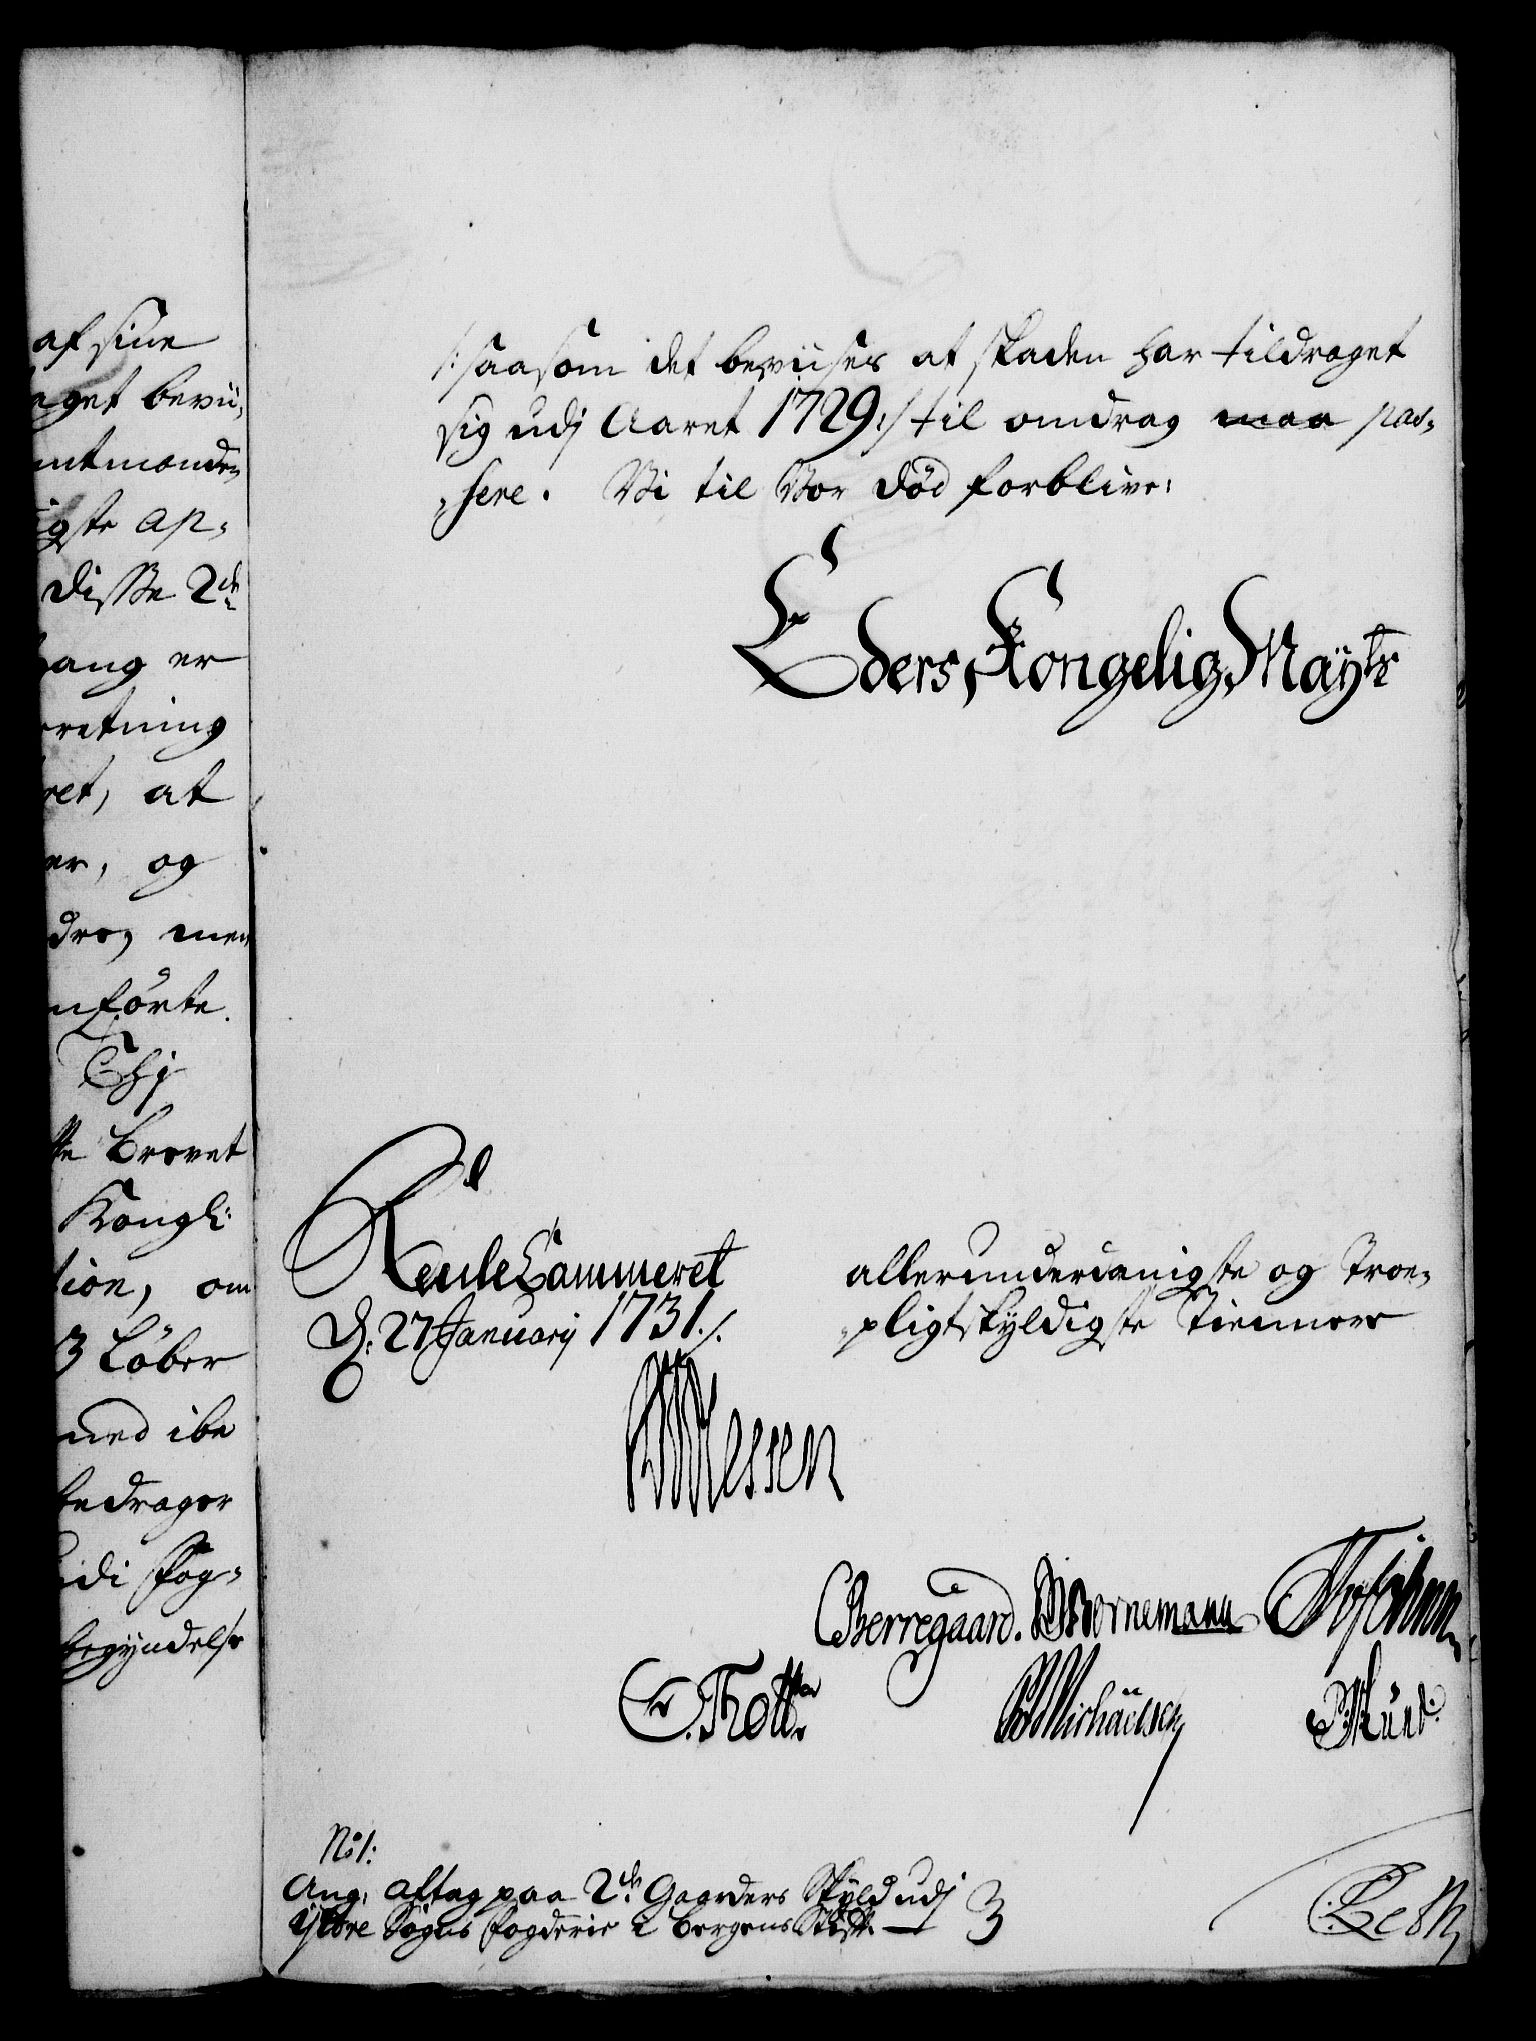 af sine
aget bevii,
mtmanden
igste ap,
disse 2de
gang er
rretning
ret, at
er, og
dre, men
nførte.
Thj
te brevet
Kongl:
tion, om
3 Løber
med ibe
tedrager
udi fog,
begyndelse
/:saasom det beviises at skaden har tildraget
sig udj Aaret 1729:/ til omdrag maa pas,
,sere. Vi til Vor død forblive:
Eders Kongelig Mayts
RenteCammeret
D: 27 Januarij 1731./.
allerunderdanigste og Troe,
,pligtskyldigste Tiennere
Wessen
CBerregaard. Bornemann
C. Thott
Michaelsen
No 1:
Ang: aftag paa 2de Gaarders Skyld udj
Yttre Sogns fogderie i Bergens Stift. — 3